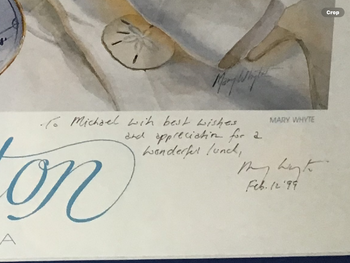 Crop
Mary Whyte
MARY WHYTE
To Michael with best wishes
and appreciation for a
wonderful lunch,
Mary Whyte
Feb. 12 '99
ton
A